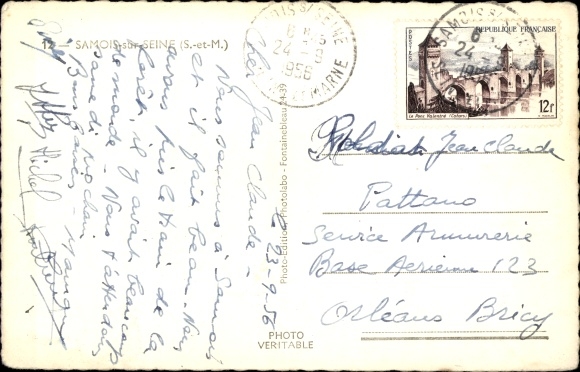 12 - SAMOIS-sur-SEINE (S.-et-M.)
le 23-9-56
Cher Jean Claude -
Nous sommes à Samois
et il fait beau. Nous
avons pris le train de la
forêt, il y avait beaucoup
de monde - Nous t'attendons
samedi prochain
Bons baisers - 
Michel
Photo-Edition Photolabo - Fontainebleau 24-39
PHOTO
VERITABLE
SAMOIS S/ SEINE
24
1956
SEINE ET MARNE
SAMOIS S/ SEINE
24
POSTES
REPUBLIQUE FRANÇAISE
Le Pont Valentré (Cahors)
12f
Jean Claude
Pattano
Service Armurerie
Base Aerienne 123
Orléans Bricy